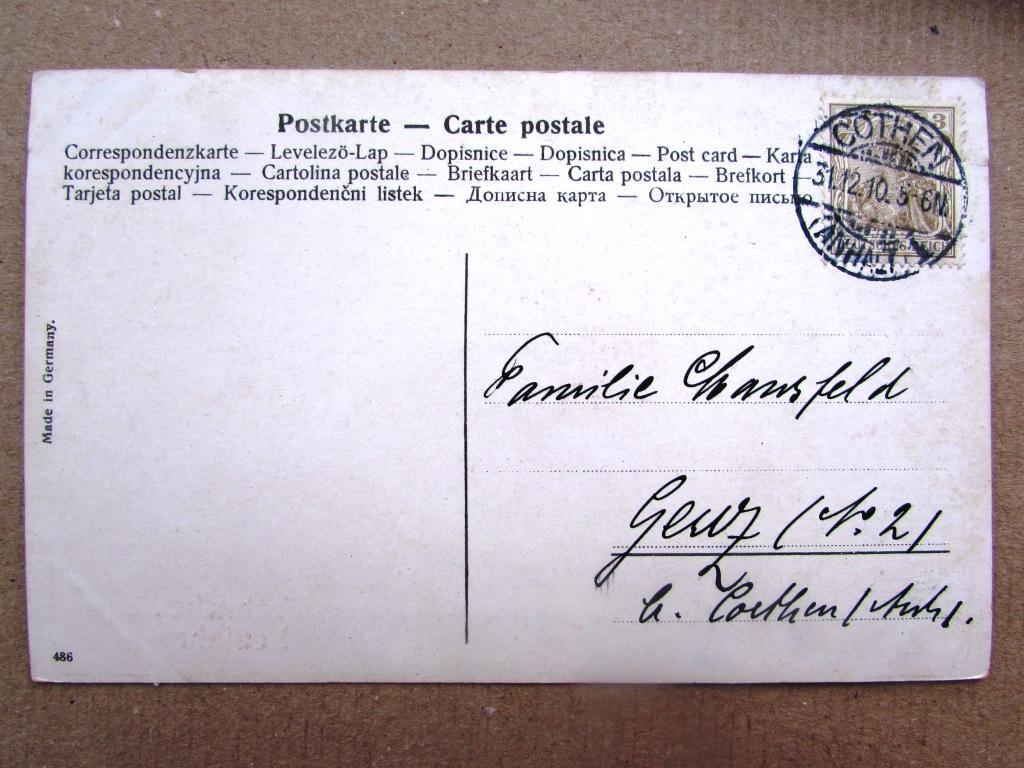 Postkarte — Carte postale
Correspondenzkarte — Levelezö-Lap — Dopisnice — Dopisnica — Post card — Karta
korespondencyjna — Cartolina postale — Briefkaart — Carta postala — Brefkort —
Tarjeta postal — Korespondenčni listek — Дописна карта — Открытое письмо
3
CÖTHEN
31.12.10. 5-6N.
(ANHALT)
REICH
Made in Germany.
Familie Mansfeld
Geuz (No. 2)
b. Coethen / Anh.
486